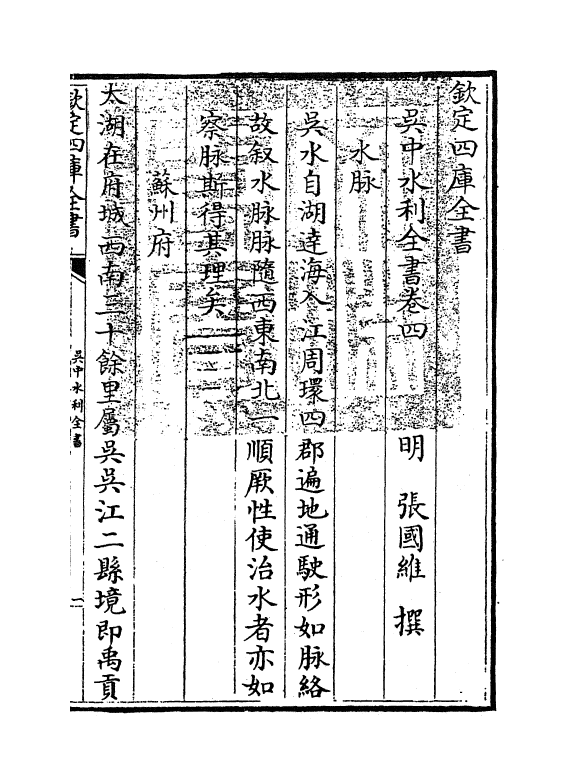 欽定四庫全書
吳中水利全書卷四
明 張國維 撰
水脉
吳水自湖達海入江周環四郡遍地通駛形如脉絡
故叙水脉脉隨西東南北一順厥性使治水者亦如
察脉斯得其理矣
蘇州府
太湖在府城西南三十餘里屬吳吳江二縣境即禹貢
欽定四庫全書
吳中水利全書